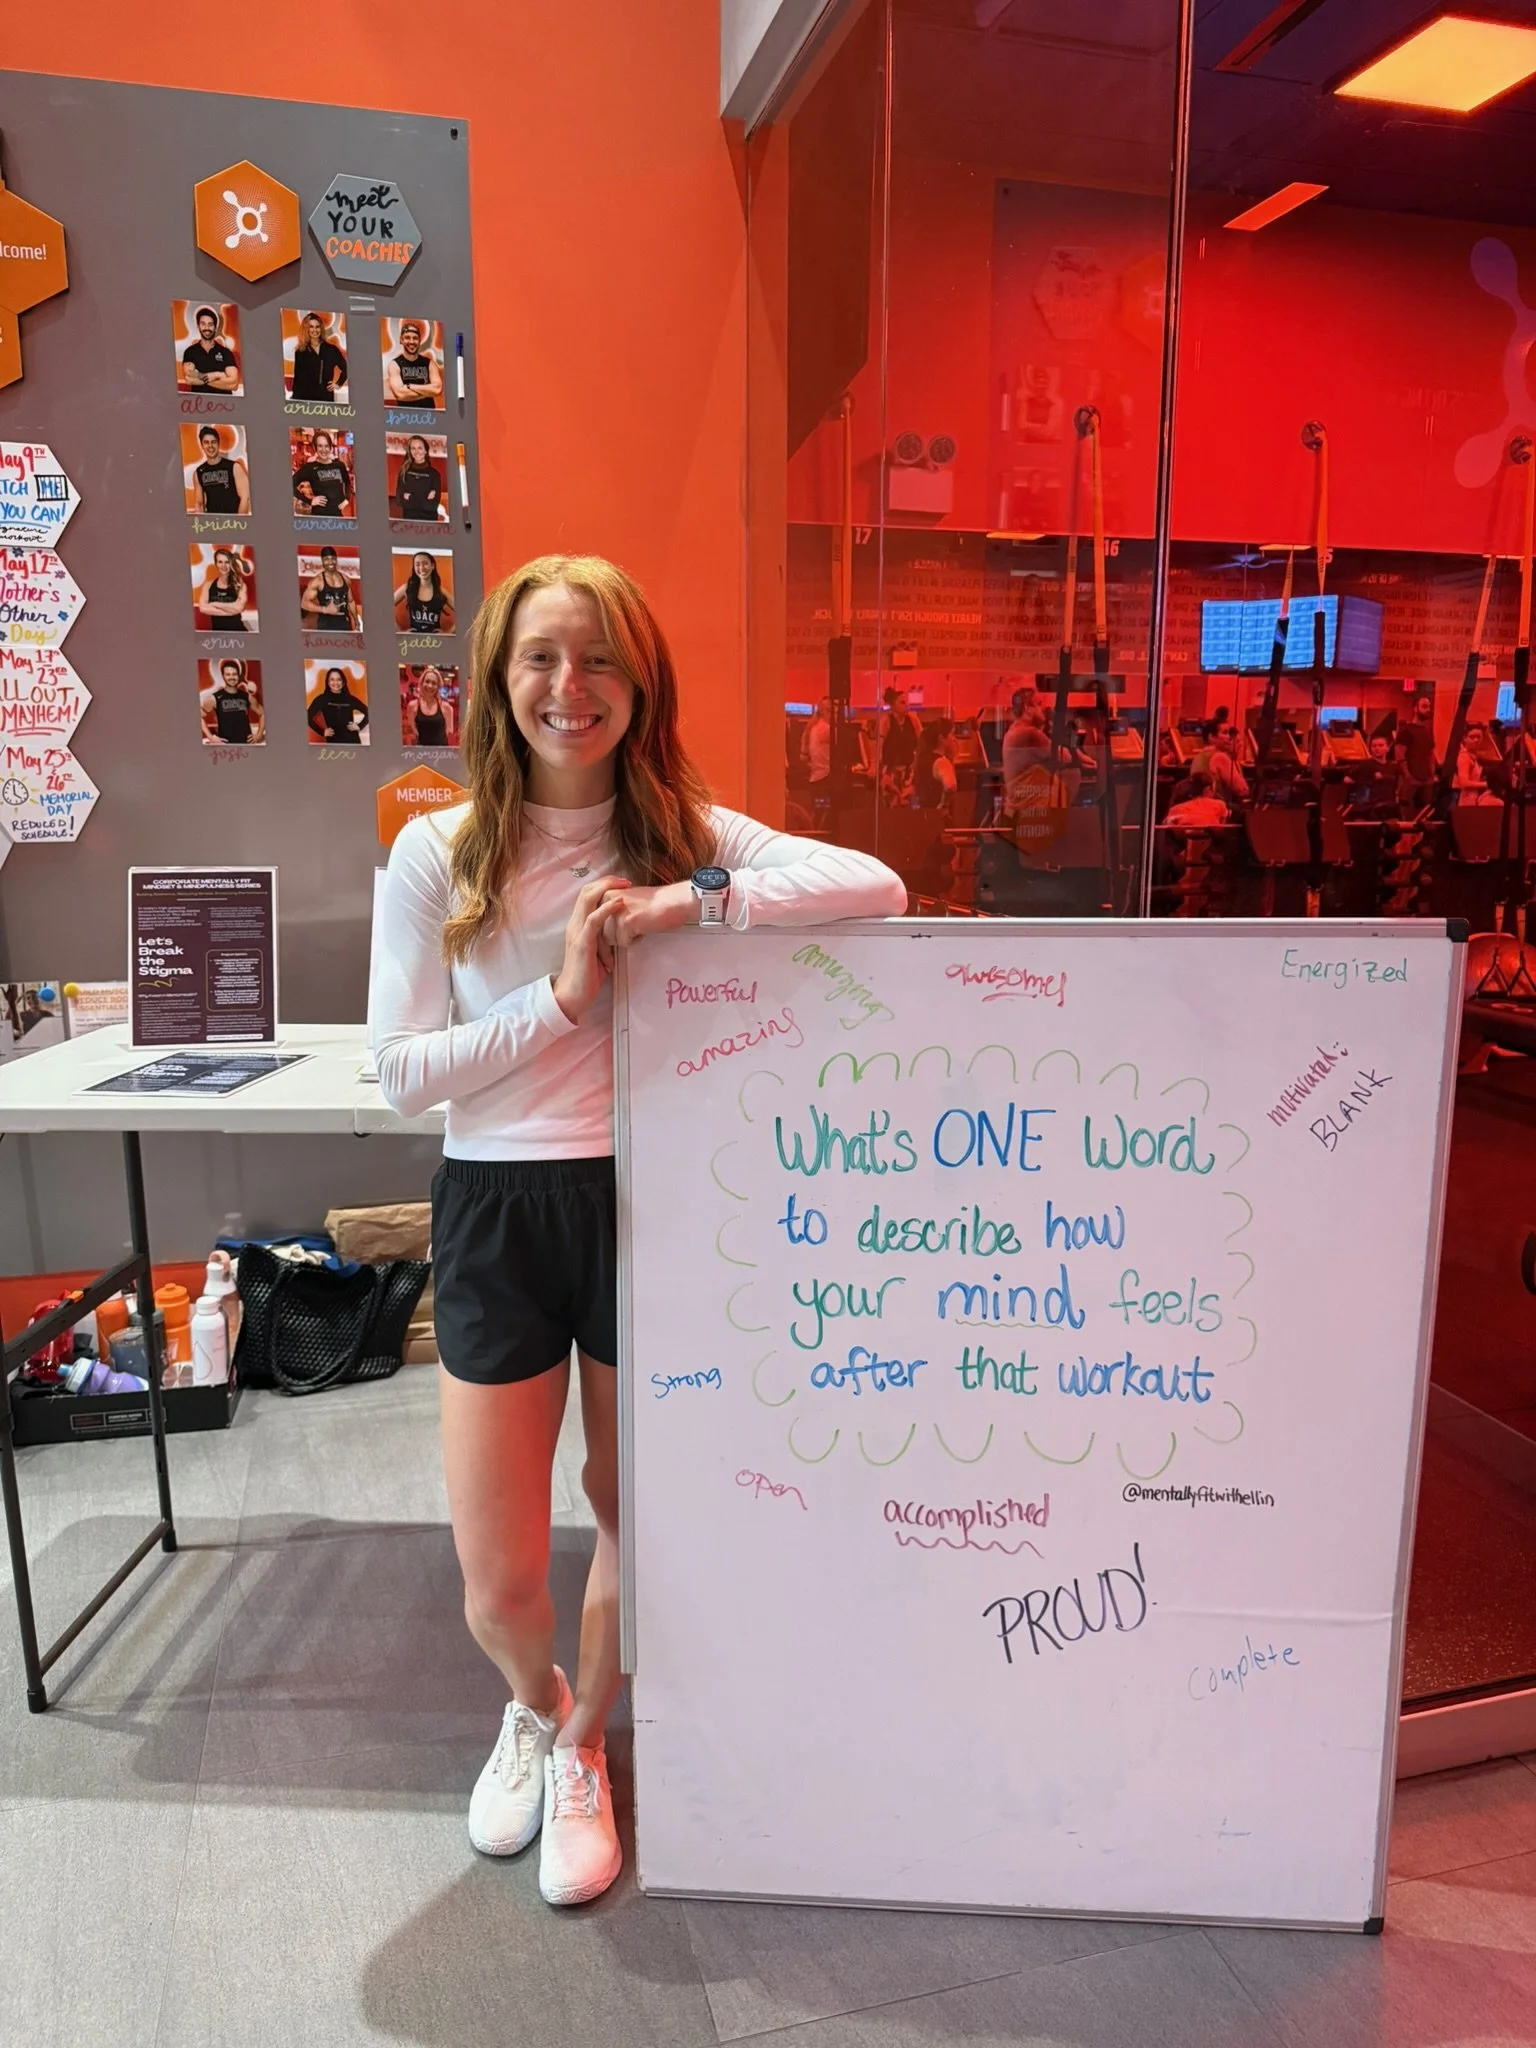 lcome!
meet
YOUR
COACHES
alex
arianna
brad
brian
caroline
corinne
erin
hancock
jade
josh
lex
morgan
MEMBER
May 9TH
ME
YOU CAN!
signature
workout
May 12TH
Mother's
Other
Day
May 17TH
23RD
ALL OUT
MAYHEM!
May 25TH
&
26TH
MEMORIAL
DAY
REDUCED!
SCHEDULE!
CORPORATE MENTALLY FIT
MINDSET & MINDFULNESS SERIES
Let's
Break
the
Stigma
17
16
Powerful
amazing
awesome
Energized
amazing
motivated
BLANK
What's ONE Word
to describe how
your mind feels
after that workout
strong
open
accomplished
@mentallyfitwithellin
PROUD!
Complete